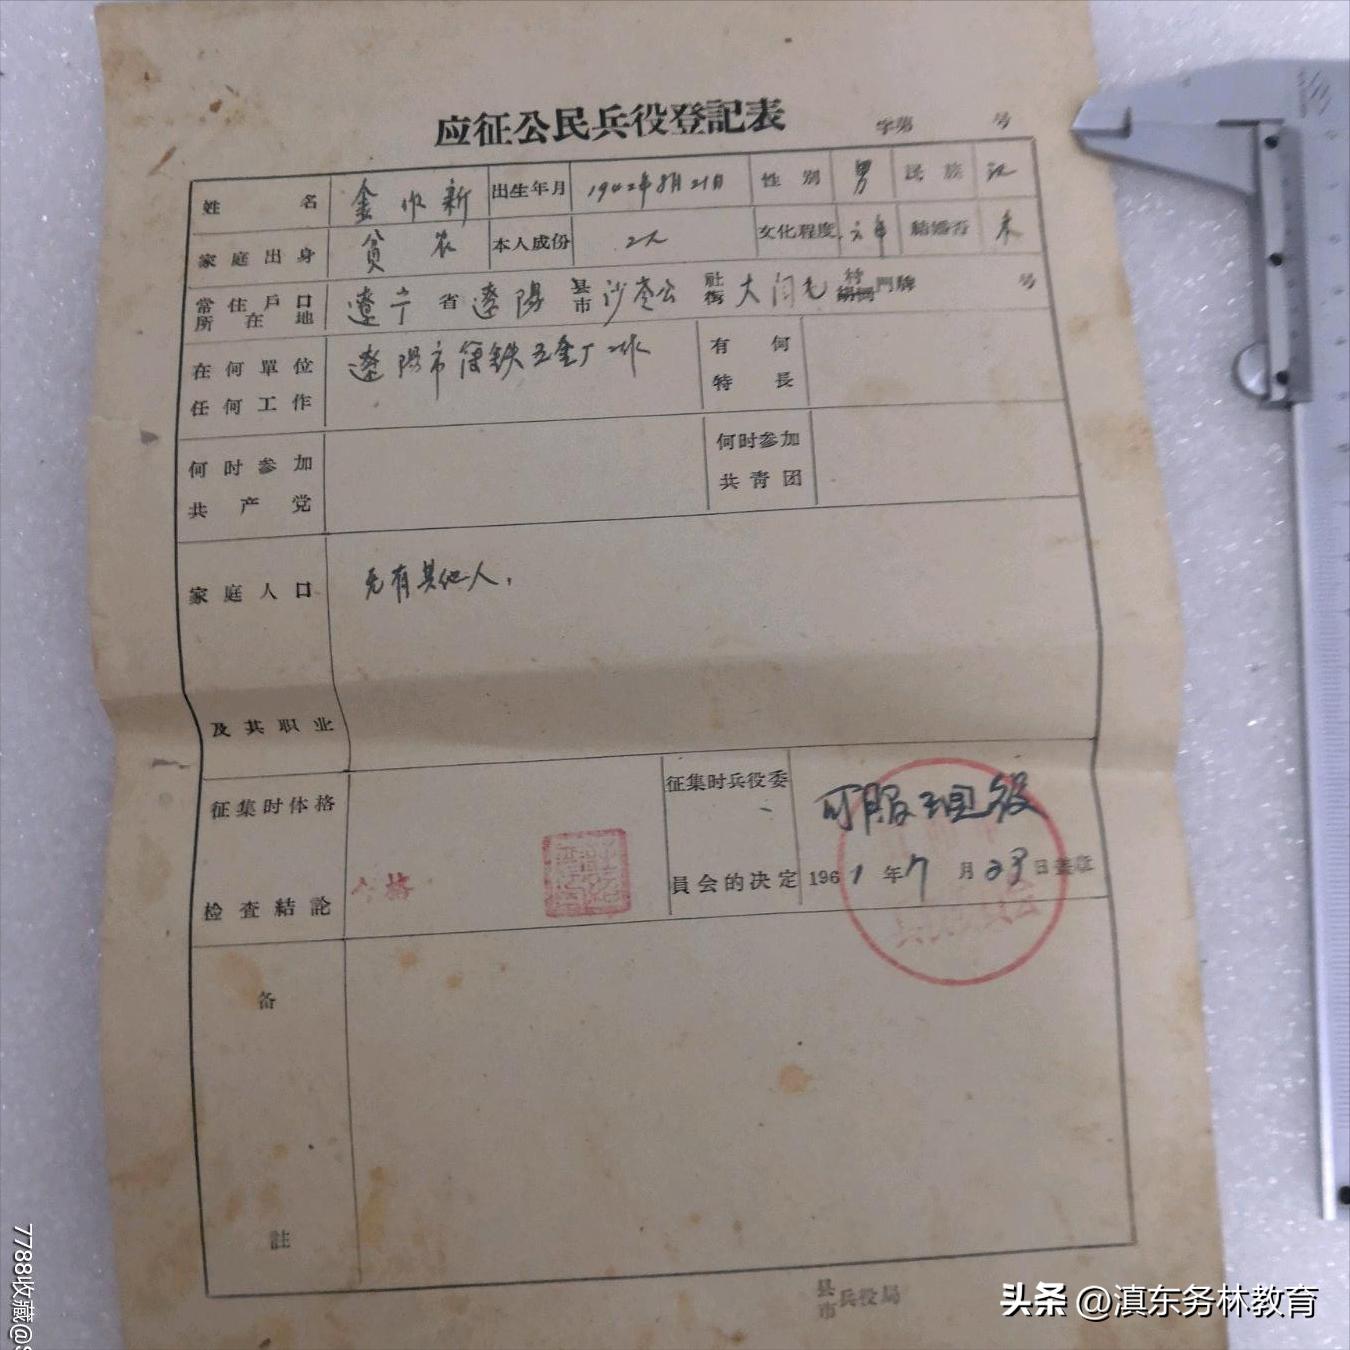 应征公民兵役登記表
字第 号
姓名 金 新 出生年月 1942年8月21日 性別 男 民族 汉
家庭出身 貧农 本人成份 工人 文化程度 六年 結婚否 未
常住戶口所在地 遼宁 省 遼陽 县市 沙 公 社街 大 村 門牌 号
在何單位 遼陽市 鉄五金厂 有何
任何工作 特長
何时参加 何时参加
共产党 共青团
家庭人口 无有其他人.
及其职业
征集时体格 征集时兵役委 可服现役
检查結論 合格 員会的决定 1961年7月23日盖章
备
註
县市兵役局
7788收藏@
头条 @滇东务林教育